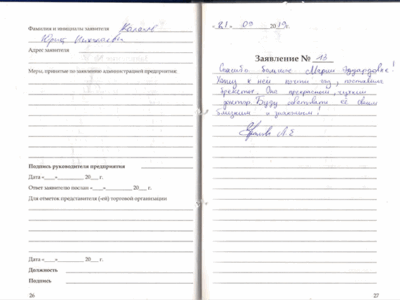 Фамилия и инициалы заявителя
Юрия Николаевич
Адрес заявителя
Меры, принятые по заявлению администрацией предприятия:
Подпись руководителя предприятия
Дата «___»________ 20___ г.
Ответ заявителю послан «___»________ 20___ г.
Для отметок представителя (-ей) торговой организации
Дата «___»________ 20___ г.
Должность
Подпись
26
«21» 09 2019г.
Заявление № 13
Спасибо большое Марии Эдуардовне!
Хожу к ней почти год, поставили
брекеты. Она прекрасный, чуткий
доктор. Буду советовать её своим
близким и знакомым!
Л.Е
27